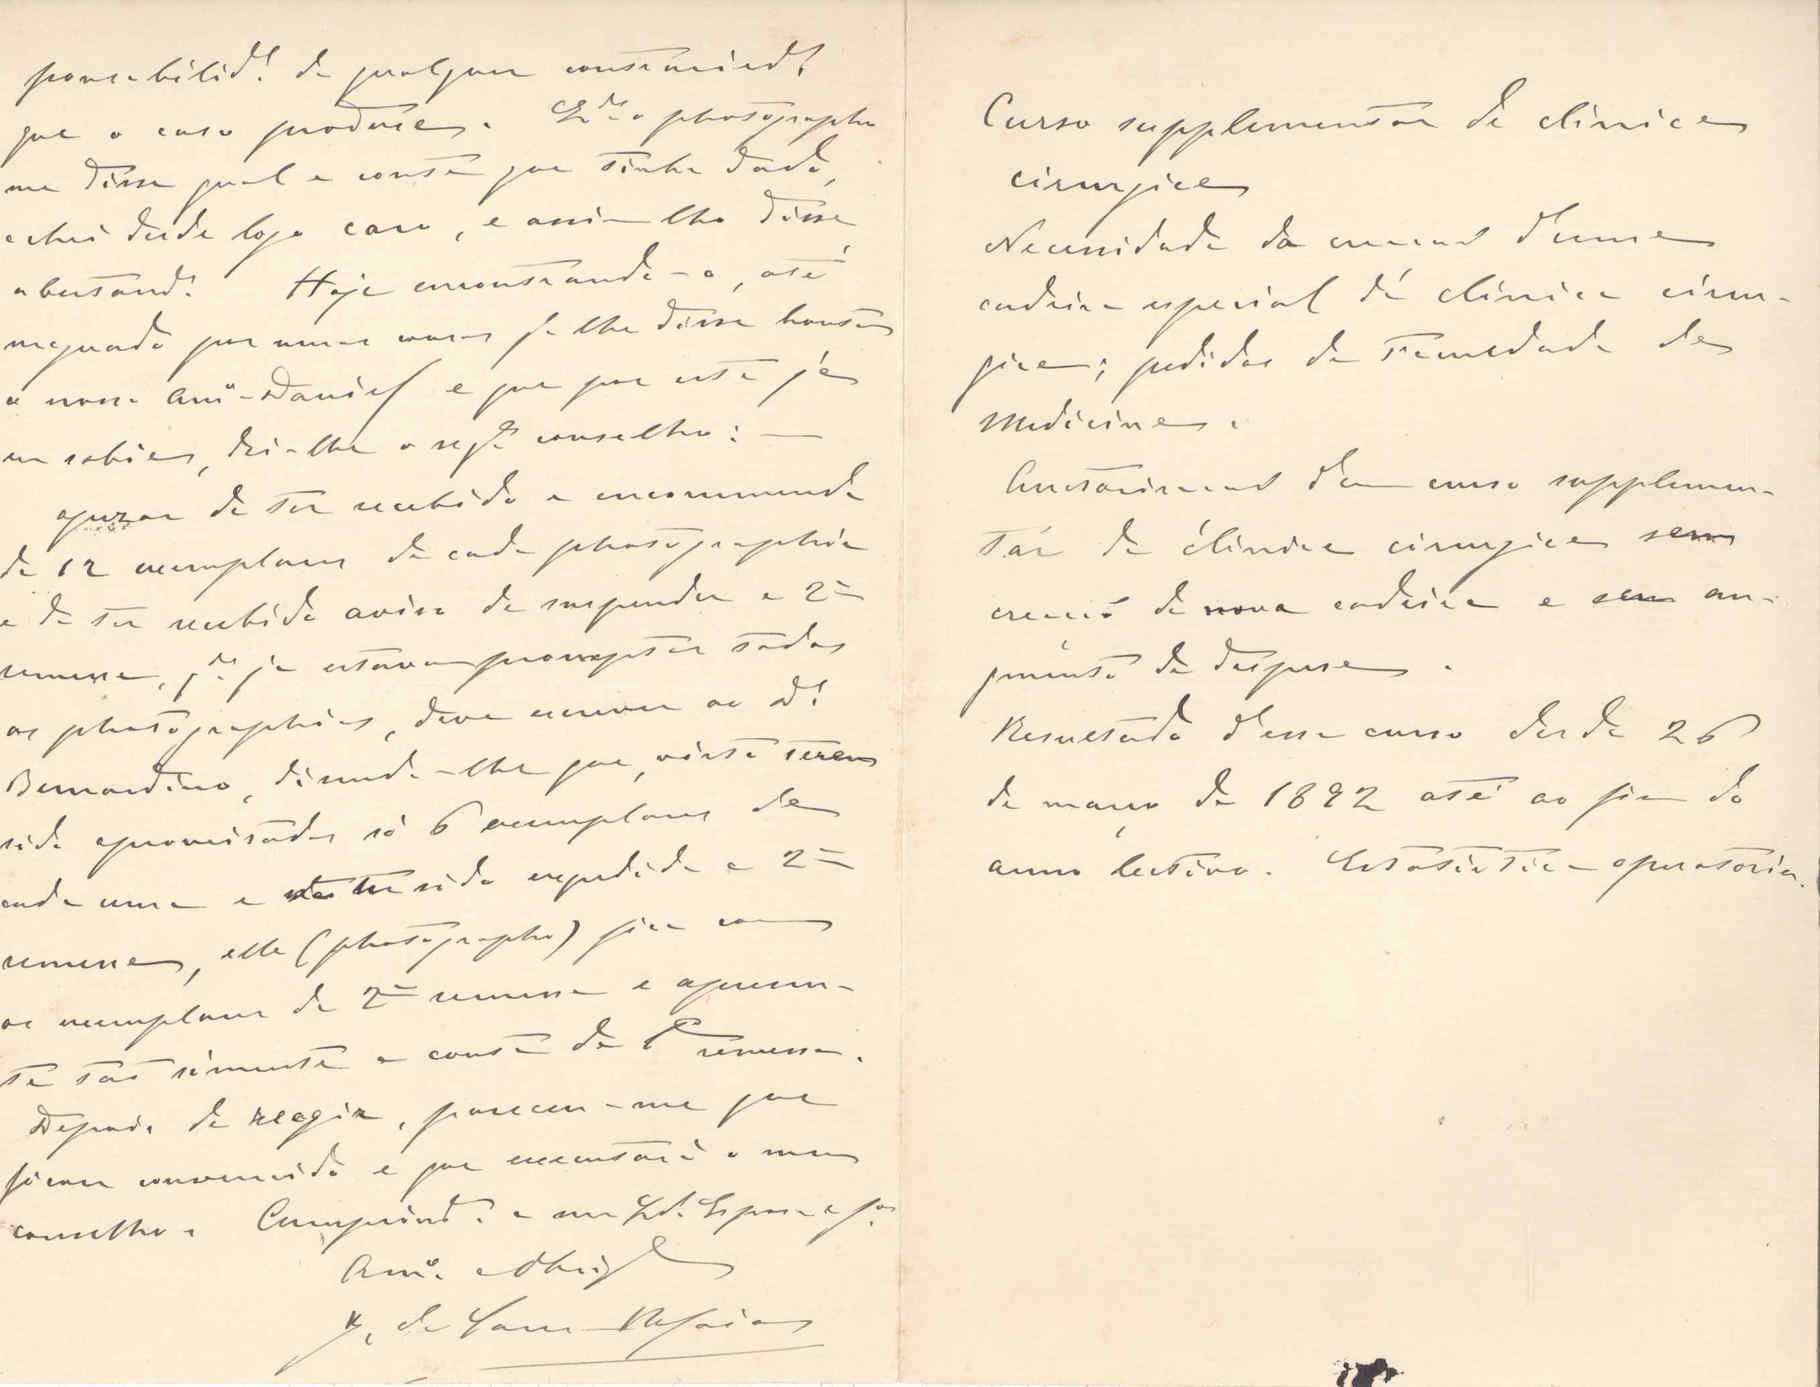 ponsabilid.e de qualquer contraried.e
que o caso produza. Qdo o photographo
me disse qual a conta que tinha dado,
achei desde logo cara, e assim lho disse
abertand.
Hoje encontrando-o, até
magoado por umas cousas q lhe disse hontem
o nosso amo Daniel e que por este já
eu sabia, dei-lhe o segte conselho: —
apezar de ter recebido a encommenda
de 12 exemplares de cada photographia
e de ter recebido aviso de suspender a 2a
remessa, qdo ja estavam promptas todas
as photographias, deve escrever ao Dr
Bernardino, dizendo-lhe que, visto terem
sido aproveitados só 6 exemplares de
cada uma e ter sido expedida a 2a
remessa, elle (photographo) fica com
os exemplares da 2a remessa e apresen-
ta tão sómente a conta da 1a remessa.
Depois de reagir, pareceu-me que
ficou convencido e que executará o meu
conselho. Cumprimd.
Amo e Obrigdo
de Sousa Refoios
Curso supplementar de clinica
cirurgica
Necessidade da creação d'uma
cadeira especial de clinica cirur-
gica; pedidos da Faculdade de
Medicina.
Auctorisação d'um curso supplemen-
tar de clinica cirurgica sem
creação de nova cadeira e sem au-
gmento de despesa.
Resultado d'esse curso desde 26
de março de 1892 até ao fim do
anno lectivo. Estatistica operatoria.